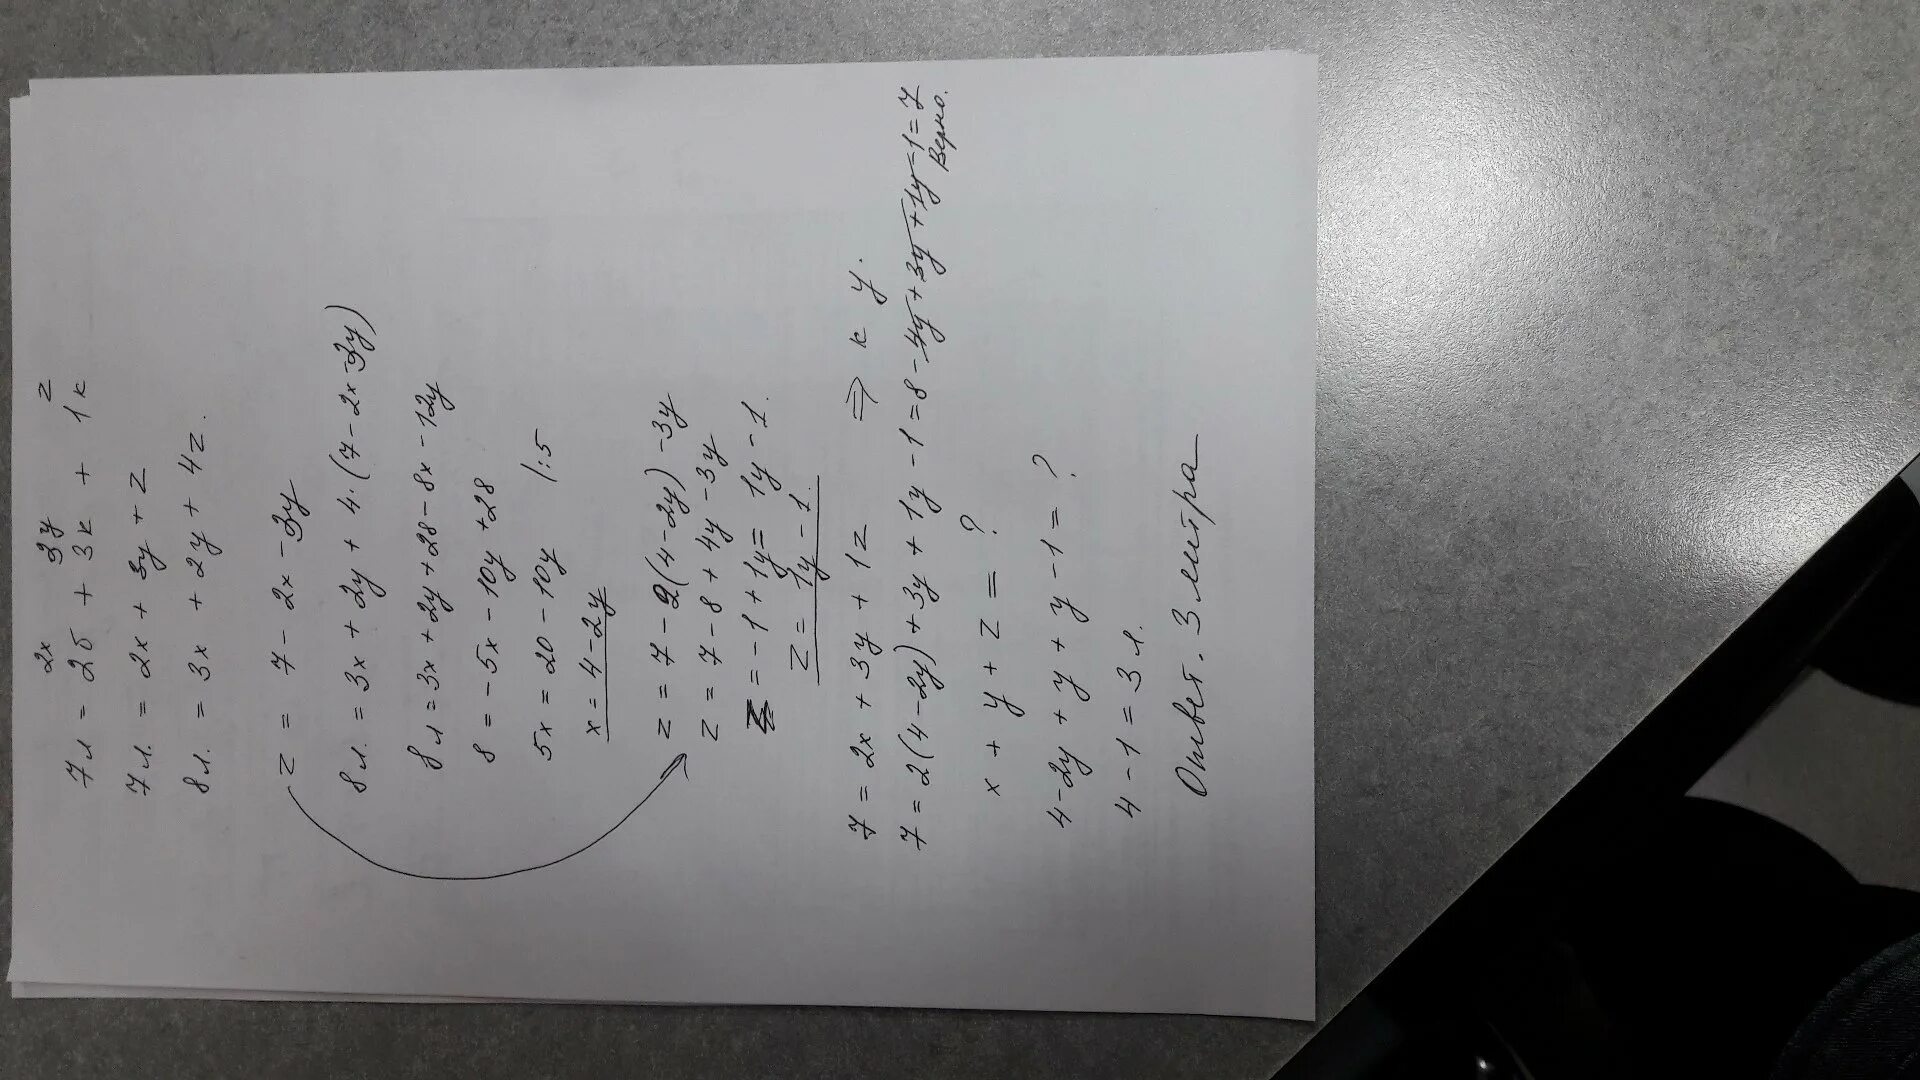 2x 3y z
7л = 2б + 3к + 1к
7л. = 2x + 3y + z
8л. = 3x + 2y + 4z.
z = 7 - 2x - 3y
8л. = 3x + 2y + 4·(7 - 2x - 3y)
8л = 3x + 2y + 28 - 8x - 12y
8 = -5x - 10y + 28
5x = 20 - 10y /:5
x = 4 - 2y
z = 7 - 2(4 - 2y) - 3y
z = 7 - 8 + 4y - 3y
z = -1 + 1y = 1y - 1.
z = 1y - 1.
7 = 2x + 3y + 1z ⇒ к y.
7 = 2(4 - 2y) + 3y + 1y - 1 = 8 - 4y + 3y + 1y - 1 = 7
Верно.
x + y + z = ?
4 - 2y + y + y - 1 = ?
4 - 1 = 3 л.
Ответ. 3 литра